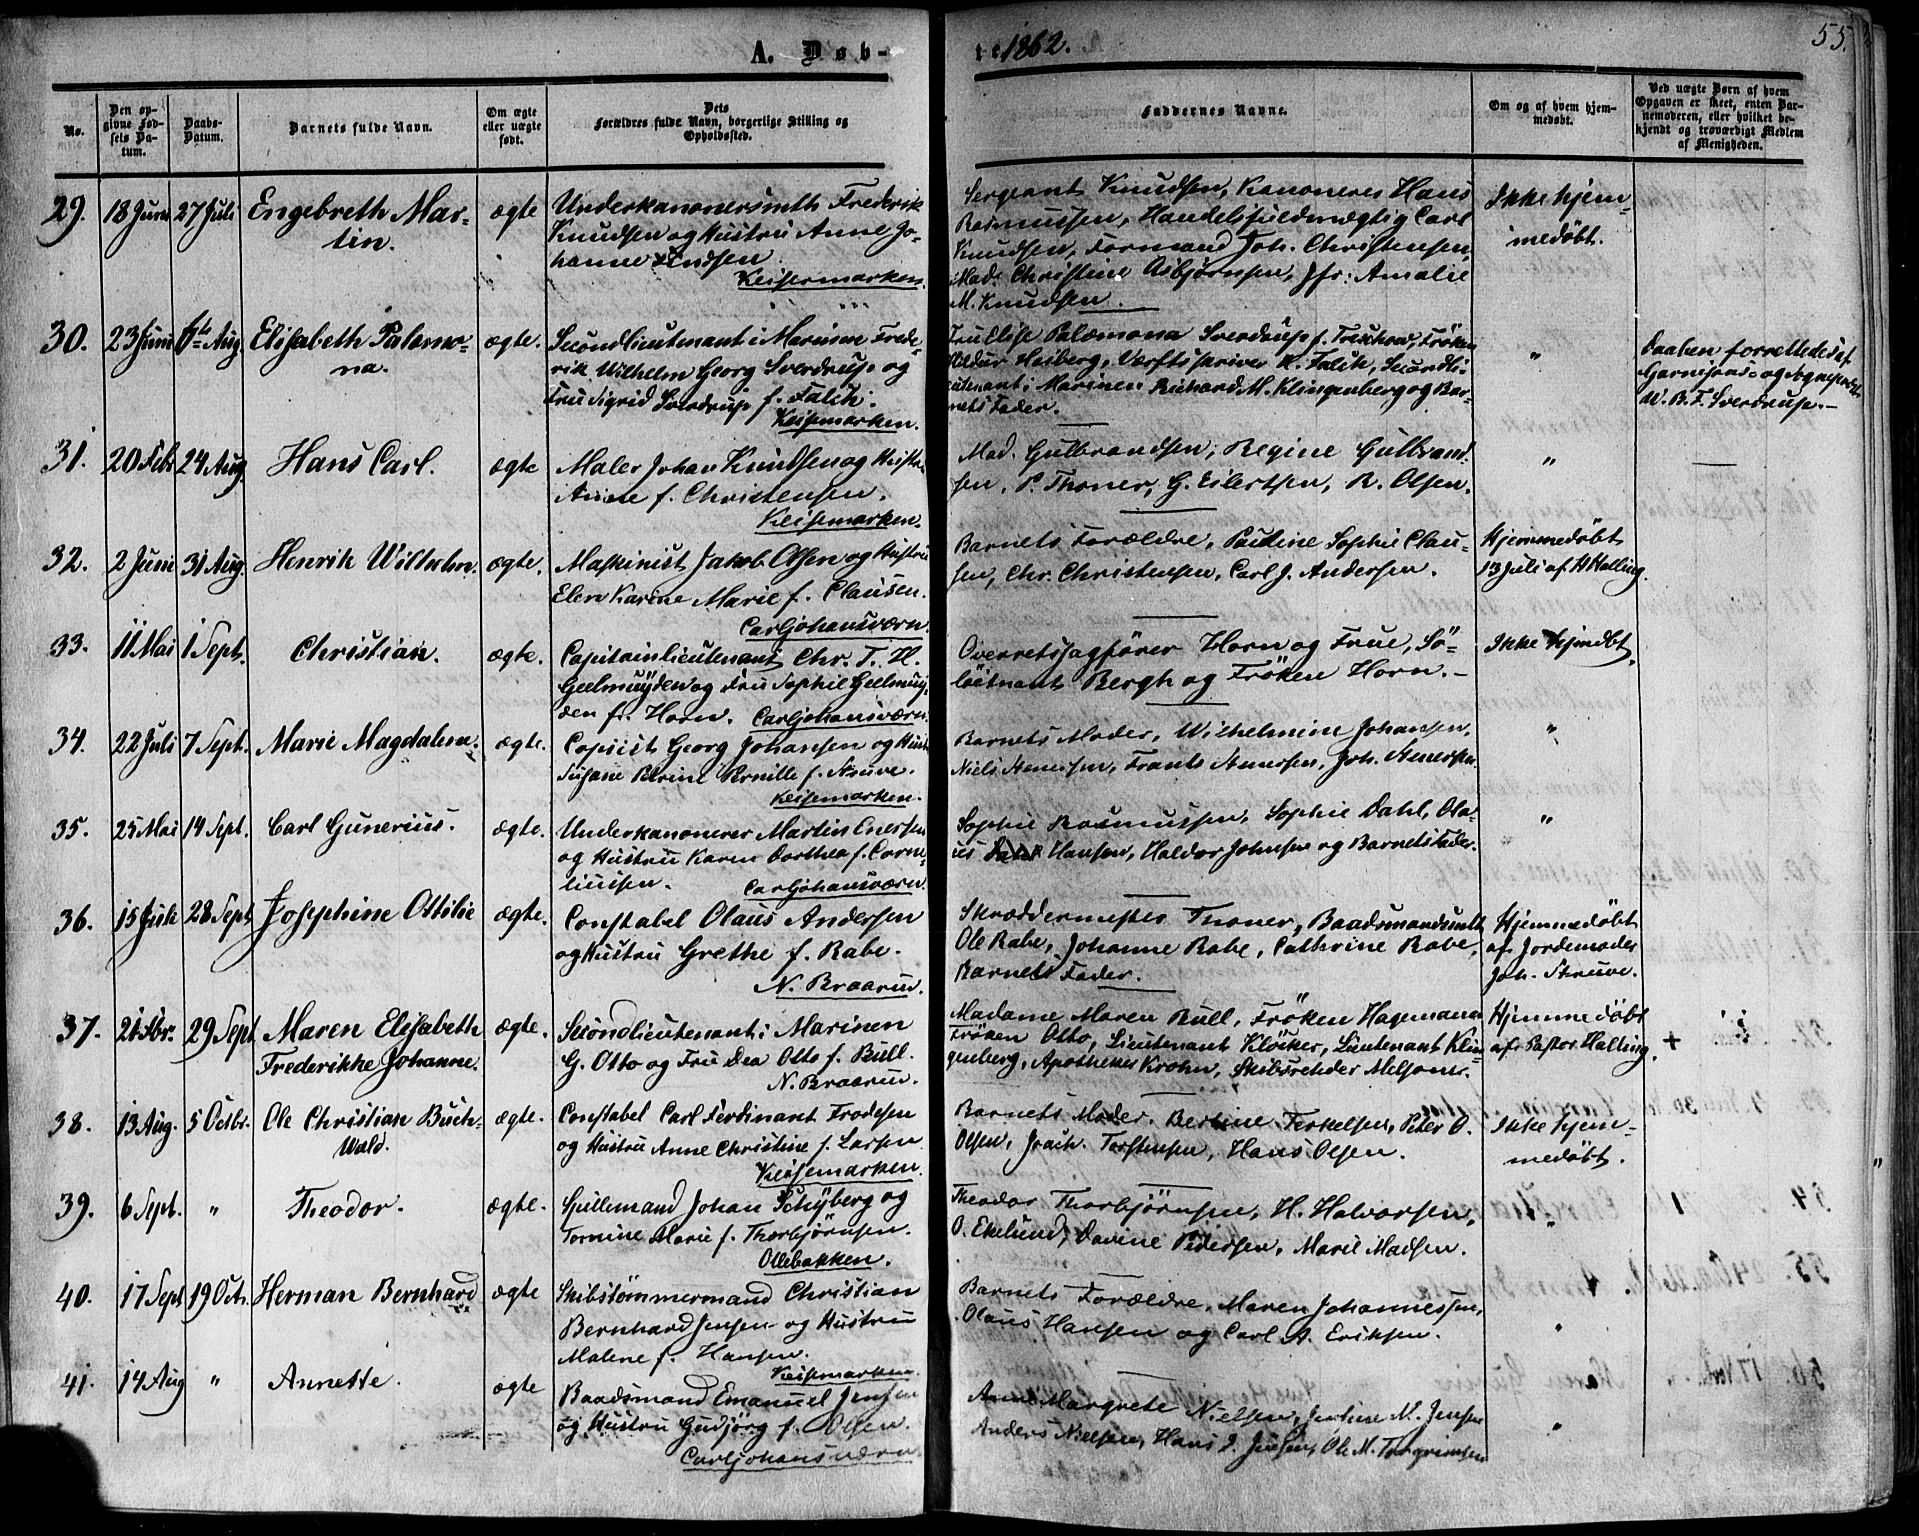 A. Døb-
te 1862.
55.
No.
Den op-
givne Fød-
sels Da-
tum.
Daabs-
Datum.
Barnets fulde Navn.
Om ægte
eller uægte
født.
Dets
Forældres fulde Navn, borgerlige Stilling og
Opholdssted.
Faddernes Navne.
Om og af hvem hjem-
medøbt.
Ved uægte Børn af hvem
Opgaven er skeet, enten Bar-
nemoderen, eller hvilket be-
kjendt og troværdigt Medlem
af Menigheden.
29. 18 Juni 27 Juli Engebreth Mar-
tin.
ægte
Underkanonersmith Frederik
Knudsen og Hustru Anne Jo-
hanne Knudsen
Keisermarken.
Sergeant Knudsen, Kanoneres Hans
Rasmussen, Handelsfuldmægtig Carl
Knudsen, Formand Joh. Christensen,
Mad. Christine Asbjørnsen, Jfr. Amalie
M. Knudsen.
Ikke hjem-
medøbt.
30. 23 Juni Aug. Elisabeth Palæmo-
na.
ægte.
Secondlieutenant i Marinen Frede-
rik Wilhelm Georg Sverdrup og
Fru Sigrid Sverdrup f. Falck.
Keisemarken.
Fru Elise Palæmona Sverdrup f. Frøken
Hildur Heiberg, Værftsskriver K. Falck, Secondli-
eutenant i Marinen Richard M. Klingenberg og Bar-
nets Fader.
"
Daaben forrettedes af
Garnisons- og Sogneprest
W. B. F. Sverdrup.-
31. 20 Febr 24 Aug. Hans Carl.
ægte
Maler Johan Knudsen og Hustru
Anne f. Christensen.
Keisemarken.
Mad. Gulbrandsen, Regine Gulbrand-
sen, P. Thoner, G. Eilertsen, R. Olsen.
"
32. 2 Juni 31 Aug. Henrik Wilhelm.
ægte.
Maskinist Jakob Olsen og Hustru
Elen Karine Marie f. Clausen.
Carljohansværn.
Barnets Forældre, Pauline Sophie Clau-
sen, Chr. Christensen, Carl J. Andersen.
Hjemmedøbt
13 Juli af H Halling.
33. 11 Mai 1 Sept. Christian.
ægte.
Capitainlieutenant Chr. T. H.
Geelmuyden og Fru Sophie Geelmuy-
den f. Horn. Carljohansværn.
Overretssagfører Horn og Frue, Sø-
løitnant Bergh og Frøken Horn.-
Ikke hjmdøbt.
34. 22 Juli 7 Sept. Marie Magdalena.
ægte.
Copiist Georg Johansen og Hust.
Susane Perine Pernille f. Struve.
Keisemarken.
Barnets Moder, Wilhelmine Johansen,
Niels Arnesen, Frants Arnesen, Joh. Arnesen.
"
35. 25 Mai 14 Sept. Carl Gunerius.
ægte.
Underkanonerer Martin Enersen
og Hustru Karen Dorthea f. Corne-
liussen. Carljohansværn.
Sophie Rasmussen, Sophie Dahl, Ola-
us Hansen, Haldor Johnsen og Barnets Fader.
"
36. 15 Juli 28 Sept Josephine Ottilie
ægte.
Constabel Olaus Andersen
og Hustru Grethe f. Rabe.
N. Braarud.
Skræddermester Thoner, Baadsmandsmth
Ole Rabe, Johanne Rabe, Cathrine Rabe,
Barnets Fader.
Hjemmedøbt
af Jordemoder
Joh. Struve.
37. 29 Sept Maren Elisabeth
Frederikke Johanne.
ægte.
Secondlieutenant i Marinen
G. Otto og Fru Dea Otto f. Bull.
N. Braarud.
Madame Maren Bull, Frøken Hagemann
Frøken Otto, Lieutenant Kløcker, Lieutenant Klin-
genberg, Apotheker Krohn, Skibsrheder Melsom.
Hjemmedøbt
af Pastor Halling.
+
38. 13 Aug. 5 Octbr. Ole Christian Buch-
Wald.
ægte.
Constabel Carl Ferdinant Frodesen
og Hustru Anne Christine f. Larsen
Keisemarken.
Barnets Moder, Bertine Terkelsen, Peter O.
Olsen, Joach. Torstensen, Hans Olsen.
Ikke hjem-
medøbt.
39. 6 Sept. " Theodor.
ægte.
Spillemand Johan Schyberg og
Tornine Marie f. Thorbjørnsen.
Ollebakken.
Theodor Thorbjørnsen, H. Halvorsen,
O. Ekelund, Davine Pedersen, Marie Madsen.
"
40. 17 Sept 19 Oct. Herman Bernhard
ægte
Skibstømmermand Christian
Bernhard Jensen og Hustru
Malene f. Hansen.
Keisemarken.
Barnets Forældre, Maren Johannessen,
Olaus Hansen og Carl A. Eriksen.
"
41. 14 Aug " Annette.
ægte
Baadsmand Emanuel Jensen
og Hustru Gudjørg f. Olsen.
Carljohansværn
Anne Margrete Nielsen, M. Jensen
Anders Nielsen, Hans J. Jensen, Ole M. Torgrimsen
"